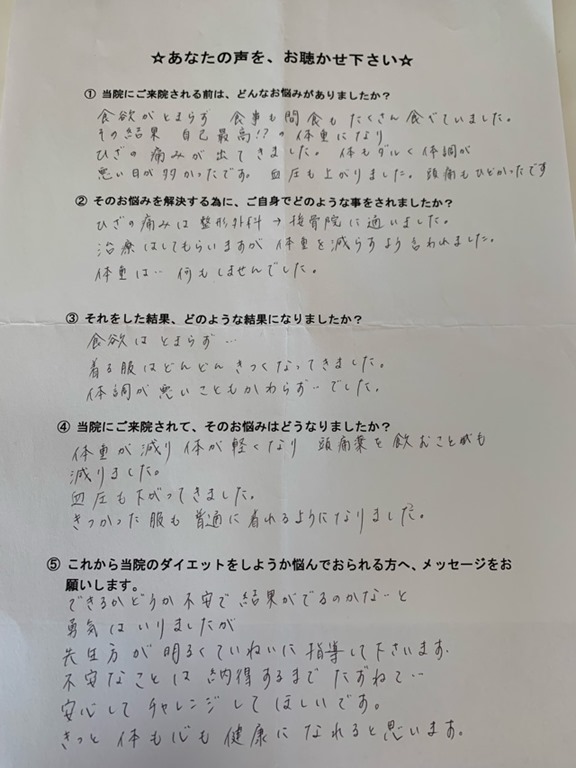 ☆あなたの声を、お聴かせ下さい☆
① 当院にご来院される前は、どんなお悩みがありましたか？
食欲がとまらず 食事も間食もたくさん食べていました。
その結果 自己最高!?の体重になり
ひざの痛みが出てきました。体もダルく体調が
悪い日が多かったです。血圧も上がりました。頭痛もひどかったです
② そのお悩みを解決する為に、ご自身でどのような事をされましたか？
ひざの痛みは整形外科→接骨院に通いました。
治療はしてもらいますが 体重を減らすよう言われました。
体重は… 何もしませんでした。
③ それをした結果、どのような結果になりましたか？
食欲はとまらず…
着る服はどんどんきつくなってきました。
体調が悪いこともかわらず…でした。
④ 当院にご来院されて、そのお悩みはどうなりましたか？
体重が減り 体が軽くなり 頭痛薬を飲むことも
減りました。
血圧も下がってきました。
きつかった服も普通に着れるようになりました。
⑤ これから当院のダイエットをしようか悩んでおられる方へ、メッセージをお
願いします。
できるかどうか不安で結果がでるのかな…と
勇気はいりましたが
先生方が明るくていねいに指導して下さいます.
不安なことは納得するまでたずねて…
安心してチャレンジしてほしいです。
きっと体も心も健康になれると思います。